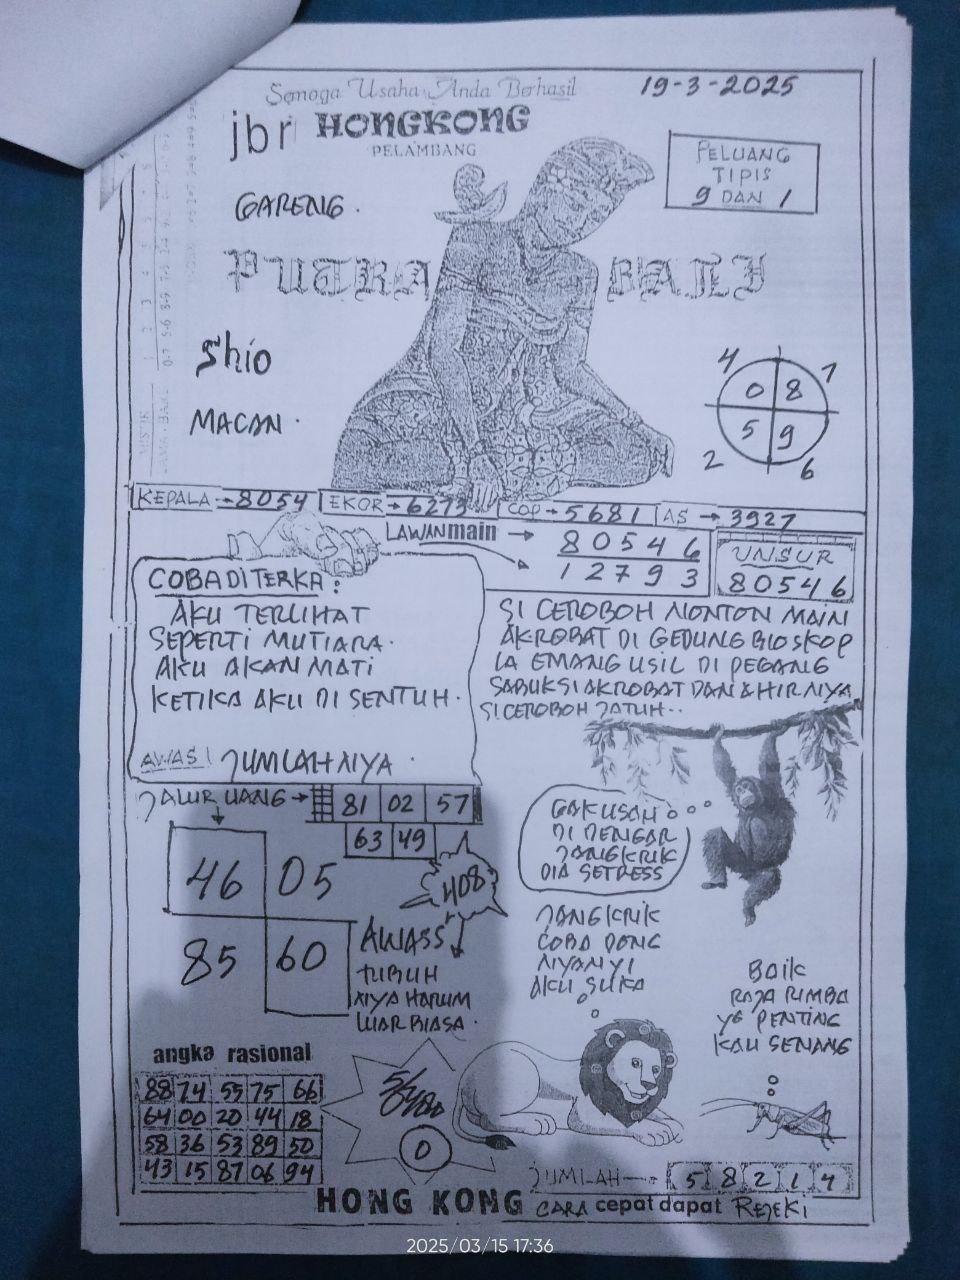 Semoga Usaha Anda Berhasil
19-3-2025
jbr HONGKONG
PELAMBANG
PELUANG
TIPIS
9 DAN 1
GARENG.
PUTRA BALI
Shio
MACAN.
4 7
0 8
5 9
2 6
KEPALA → 8054 EKOR → 6273 COP → 5681 AS → 3927
LAWAN main → 80546
12793
UNSUR
80546
COBA DITERKA:
AKU TERLIHAT
SEPERTI MUTIARA.
AKU AKAN MATI
KETIKA AKU DI SENTUH.
AWAS! JUMLAHNYA.
SI CEROBOH NONTON MAIN
AKROBAT DI GEDUNG BIOSKOP
IA EMANG USIL DI PEGANG
SABUK SI AKROBAT DAN AHIRNYA
SI CEROBOH JATUH..
JALUR UANG → 81 02 57
63 49
46 05
85 60
408
AWASS
TUBUH
NYA HARUM
LUAR BIASA.
GAK USAH
DI DENGAR
JANGKRIK
DIA SETRESS
JANGKRIK
COBA DONG
NYANYI
AKU SUKA
BAIK
RAJA RIMBA
YG PENTING
KAU SENANG
angka rasional
88 74 55 75 66
64 00 20 44 18
58 36 53 89 50
43 15 87 06 94
0
JUMLAH → 5 8 2 1 4
HONG KONG CARA cepat dapat REJEKI
2025/03/15 17:36